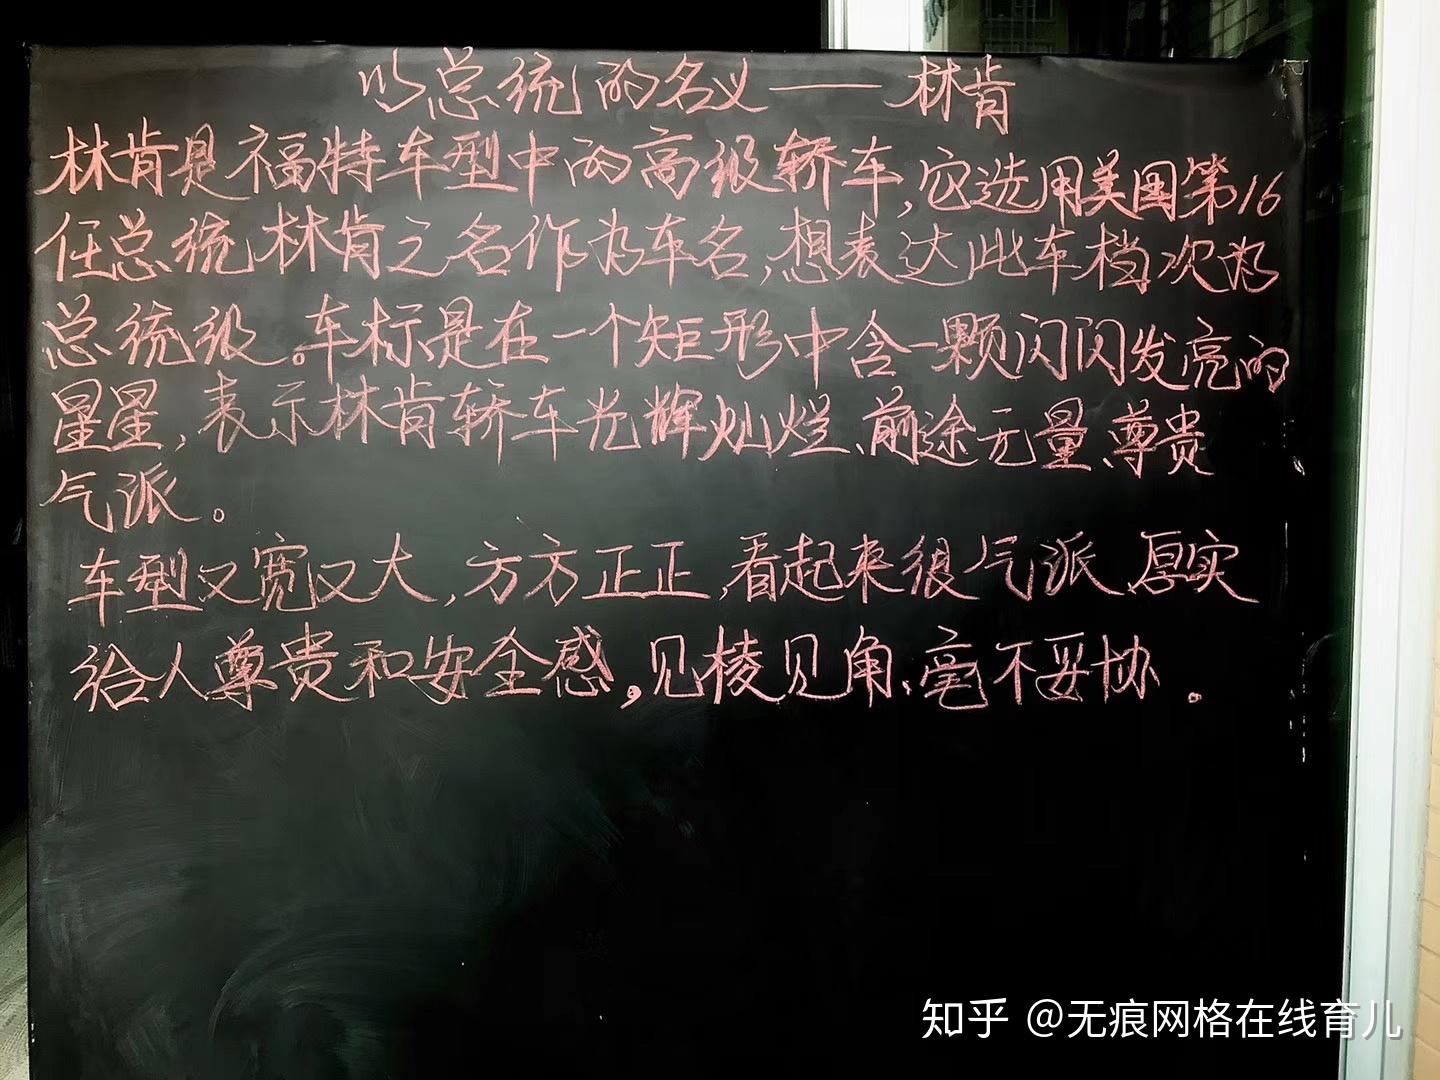 以总统的名义——林肯
林肯是福特车型中的高级轿车，它选用美国第16
任总统林肯之名作为车名，想表达此车档次为
总统级。车标是在一个矩形中含一颗闪闪发亮的
星星，表示林肯轿车光辉灿烂、前途无量、尊贵
气派。
车型又宽又大，方方正正，看起来很气派、厚实
给人尊贵和安全感。见棱见角、毫不妥协。
知乎 @无痕网格在线育儿